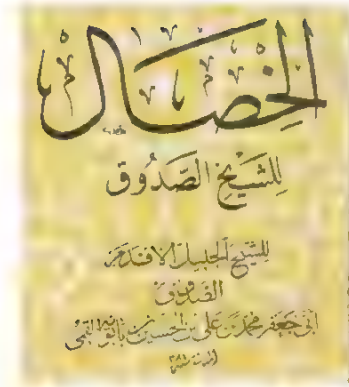 الخصال
للشيخ الصَّدُوق
للشيخ الجليل الأقدم
الصدوق
أبي جعفر محمد بن علي بن الحسين بن بابويه القمي